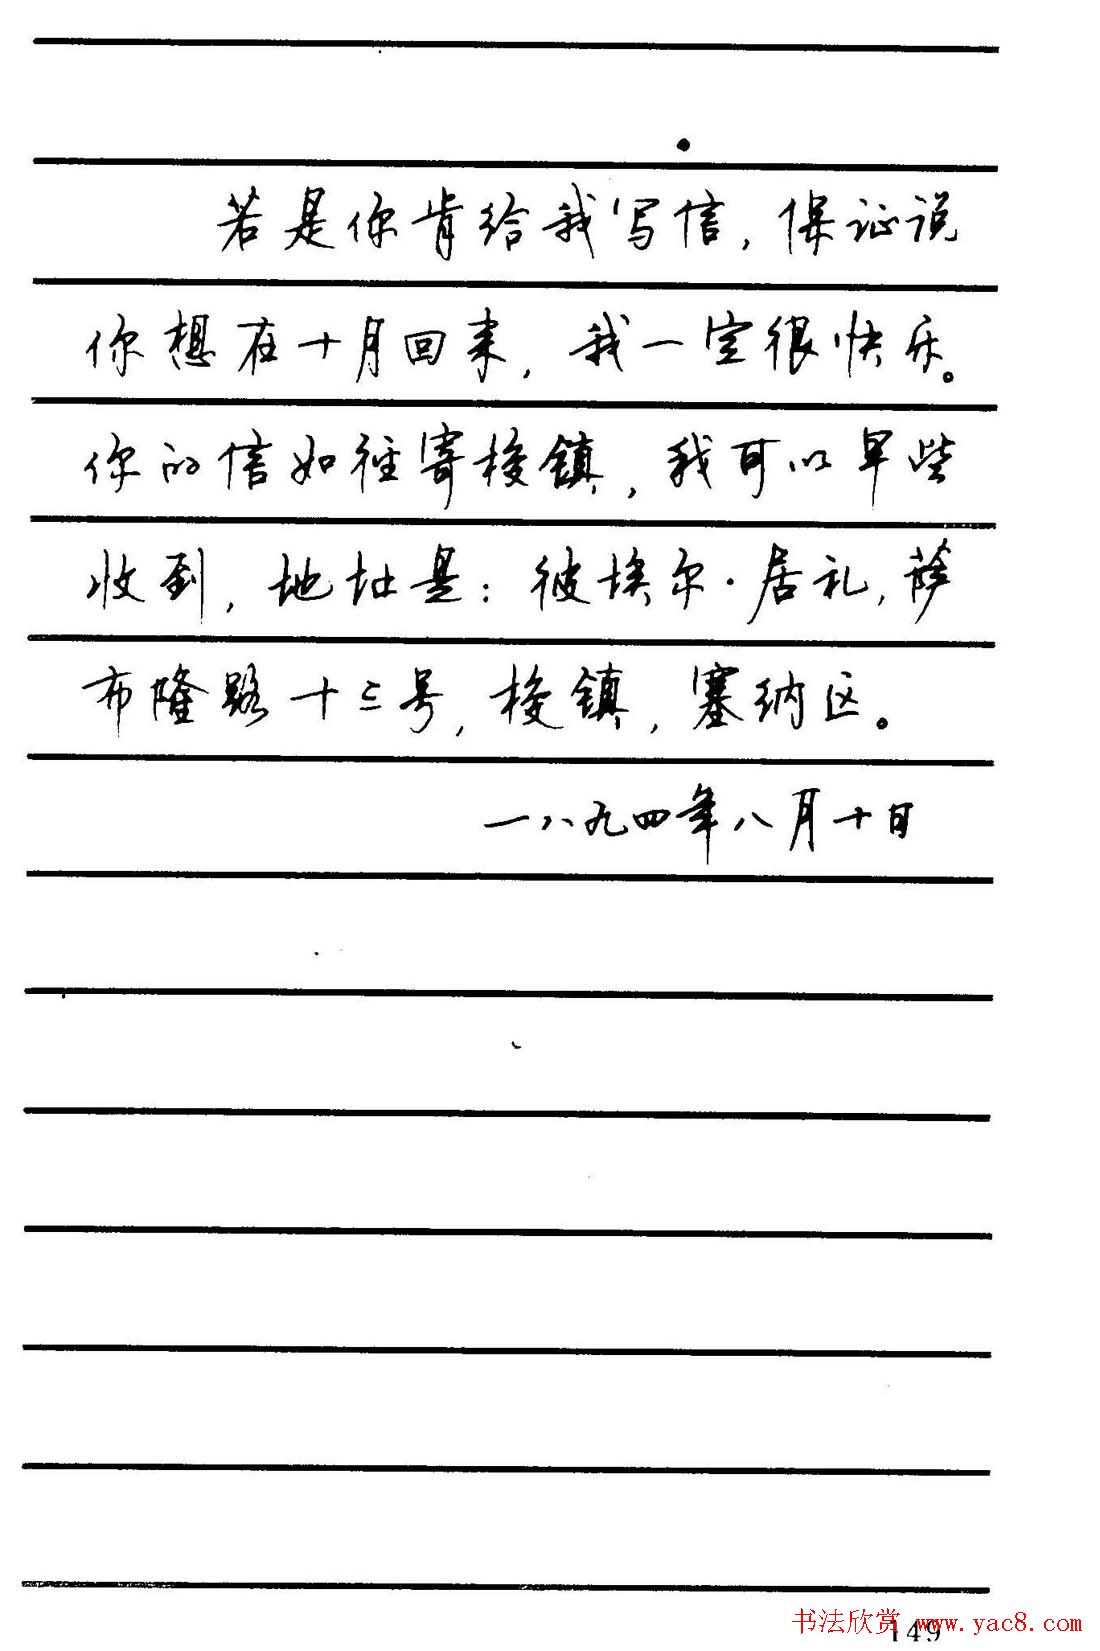 若是你肯给我写信,保证说
你想在十月回来,我一定很快乐。
你的信如径寄梭镇,我可以早些
收到,地址是:彼埃尔·居礼,萨
布隆路十三号,梭镇,塞纳区。
一八九四年八月十日
书法欣赏 www.yac8.com
149